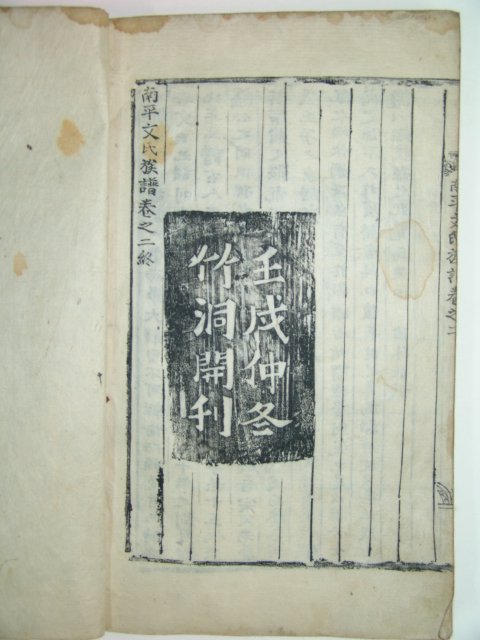 南平文氏族譜卷之二
壬戌仲冬
竹洞開刊
南平文氏族譜卷之二終